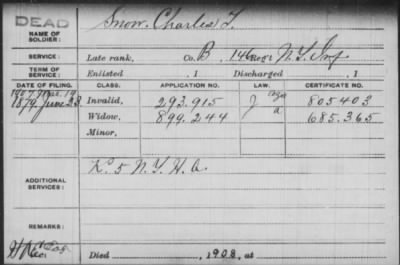 DEAD
NAME OF SOLDIER: Snow, Charles T.
SERVICE: Late rank, Co. B, 146 Reg't N.Y. Inf
TERM OF SERVICE: Enlisted , 1 Discharged , 1
DATE OF FILING. CLASS. APPLICATION NO. LAW. CERTIFICATE NO.
1879 June 23 Invalid, 293.915 J 805403
Widow, 899.244 a 685.365
Minor,
ADDITIONAL SERVICES: K. 5 N.Y.H.A.
REMARKS:
Died , 1908, at